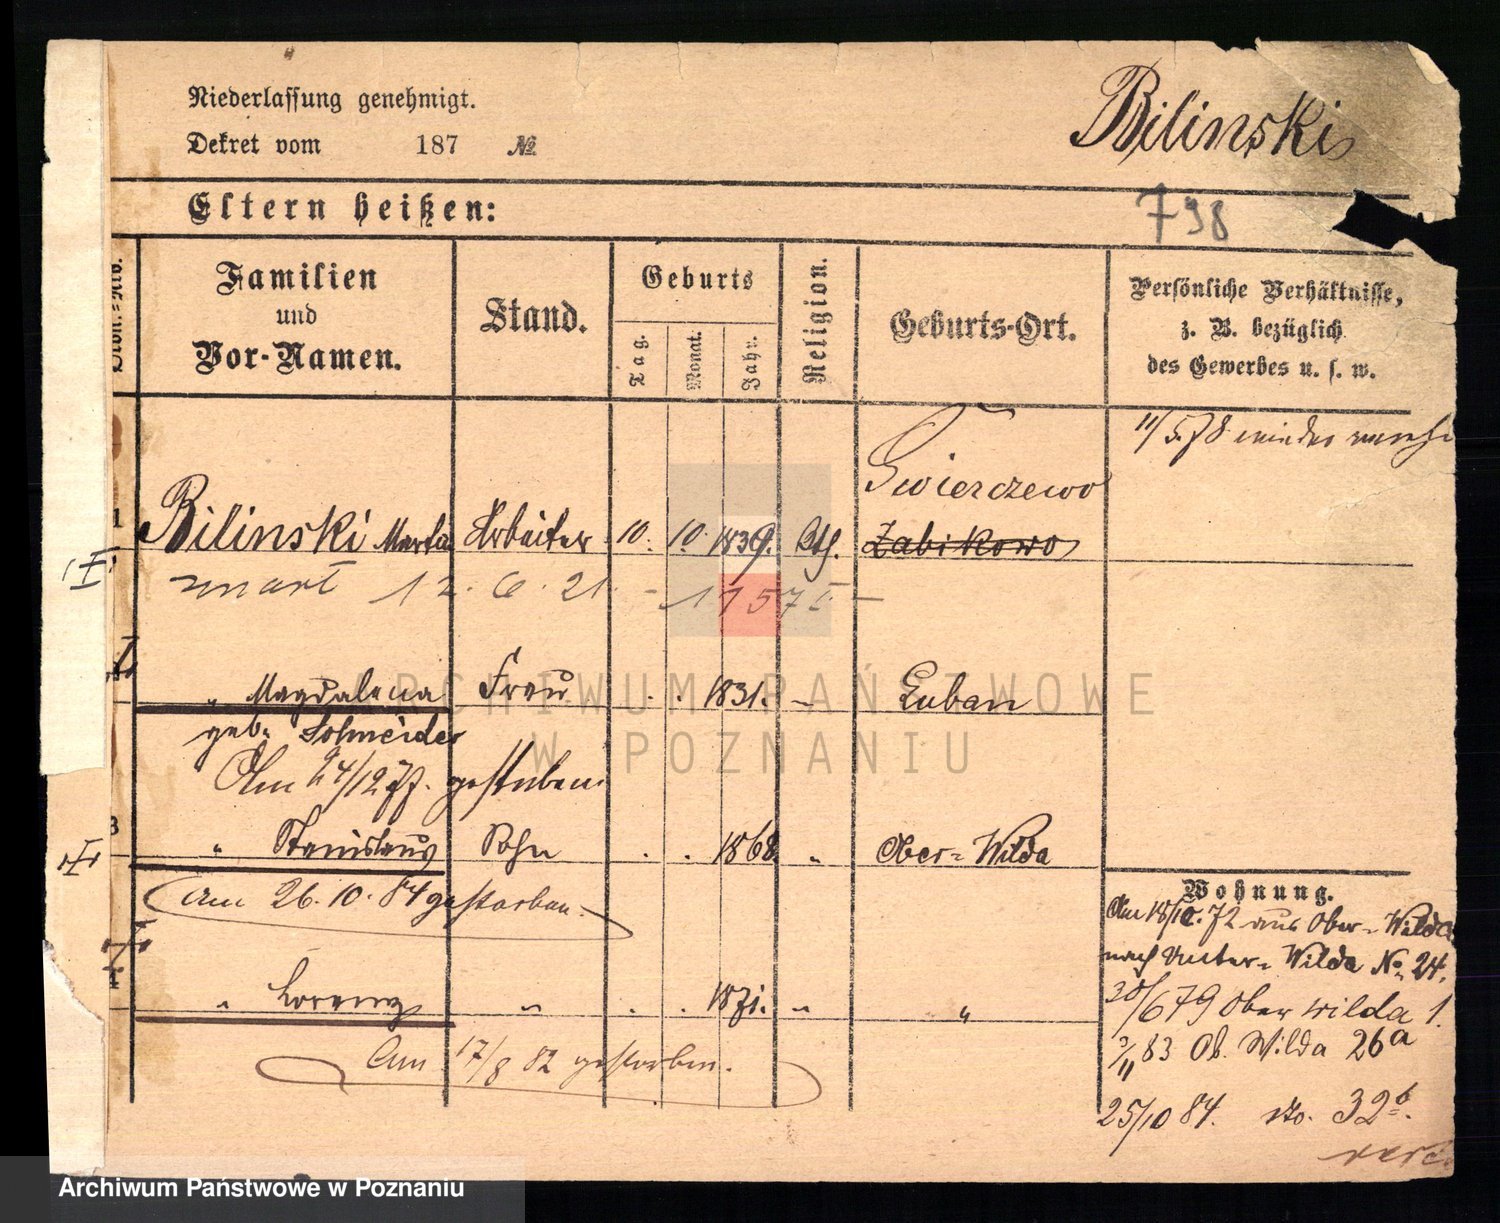 Niederlassung genehmigt.
Dekret vom 187 №
Bilinski
Eltern heißen:
798
Familien
und
Vor-Namen.
Stand.
Geburts
Tag.
Monat.
Jahr.
Religion.
Geburts-Ort.
Persönliche Verhältnisse,
z. B. bezüglich
des Gewerbes u. s. w.
11/5.78 wieder
Swierczewo
1 Bilinski Arbeiter 10. 10. 1839. Kth. Zabikowo
zmarł 12.6.21. - 11575 -
" Magdalena Frau . . 1831. - Luban
geb. Schneider
Am 24/12 77. gestorben.
3 " Stanislaus Sohn . . 1868. " Ober-Wilda
am 26.10.84 gestorben.
Wohnung.
Am 18/10.72 aus Ober-Wilda
nach Unter-Wilda No. 24.
" Lorenz " . . 1871. " "
30/6 79 Ober wilda 1.
Am 17/8 82 gestorben.
3/11 83 Ob. Wilda 26a
25/10 84. dto. 32b.
ARCHIWUM PAŃSTWOWE
W POZNANIU
Archiwum Państwowe w Poznaniu